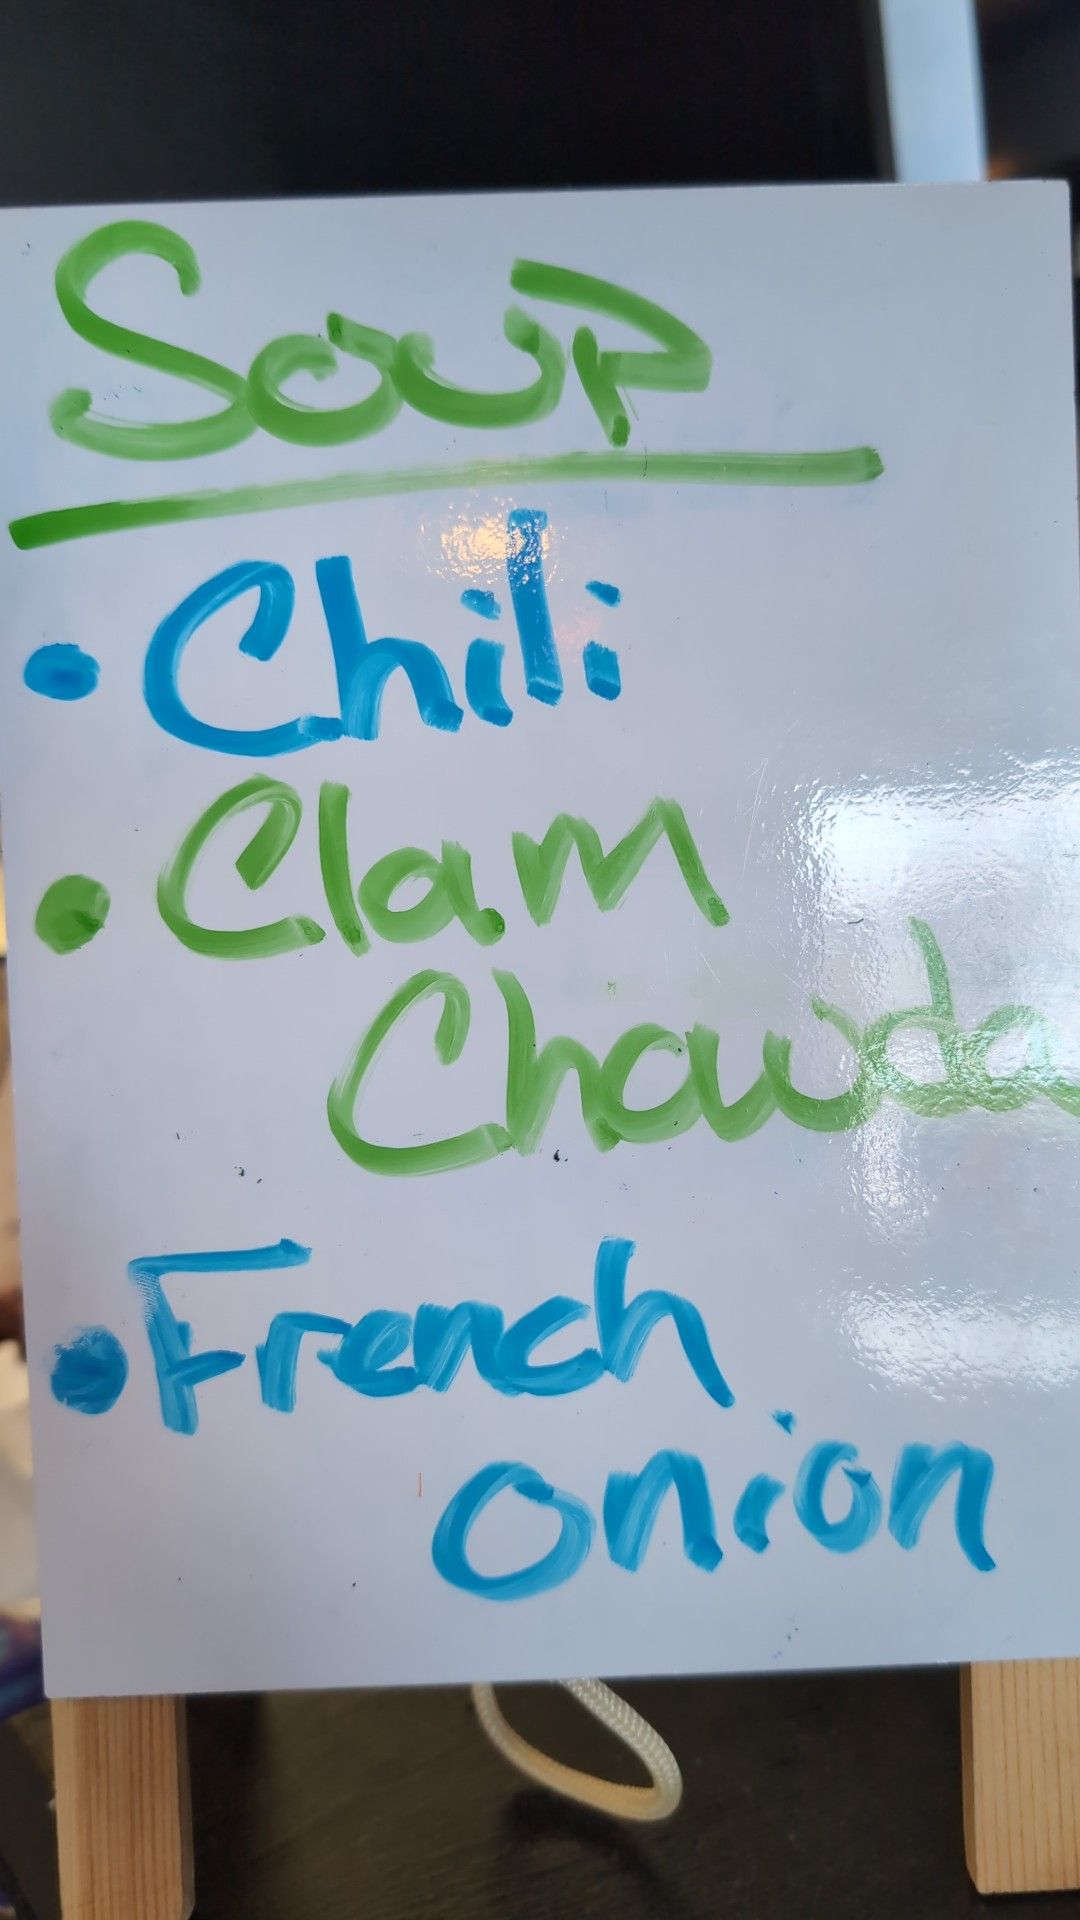 Soup
• Chili
• Clam
Chowda
• French
onion